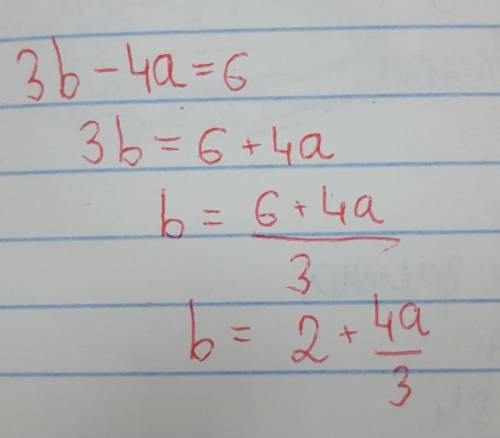 3b - 4a = 6
3b = 6 + 4a
b = (6 + 4a)/3
b = 2 + 4a/3